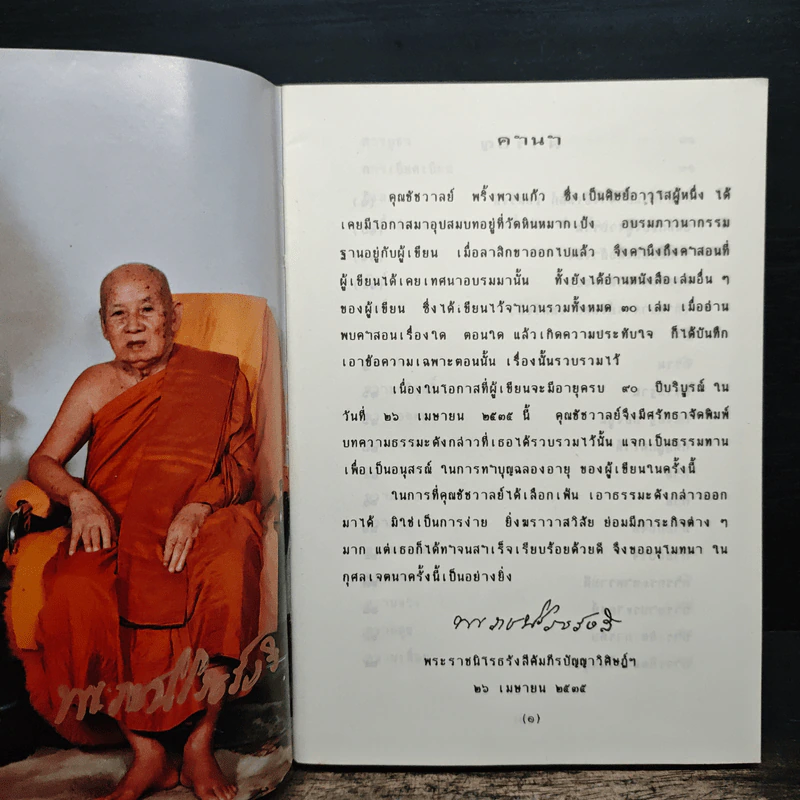 คำนำ
คุณชัชวาลย์ พริ้งพวงแก้ว ซึ่งเป็นศิษย์อาวุโสผู้หนึ่ง ได้
เคยมีโอกาสมาอุปสมบทอยู่ที่วัดหินหมากเป้ง อบรมภาวนากรรม
ฐานอยู่กับผู้เขียน เมื่อลาสิกขาออกไปแล้ว จึงคำนึงถึงคำสอนที่
ผู้เขียนได้เคยเทศนาอบรมมานั้น ทั้งยังได้อ่านหนังสือเล่มอื่น ๆ
ของผู้เขียน ซึ่งได้เขียนไว้จำนวนรวมทั้งหมด ๓๐ เล่ม เมื่ออ่าน
พบคำสอนเรื่องใด ตอนใด แล้วเกิดความประทับใจ ก็ได้บันทึก
เอาข้อความเฉพาะตอนนั้น เรื่องนั้นรวบรวมไว้
เนื่องในโอกาสที่ผู้เขียนจะมีอายุครบ ๙๐ ปีบริบูรณ์ ใน
วันที่ ๒๖ เมษายน ๒๕๓๕ นี้ คุณชัชวาลย์จึงมีศรัทธาจัดพิมพ์
บทความธรรมะดังกล่าวที่เธอได้รวบรวมไว้นั้น แจกเป็นธรรมทาน
เพื่อเป็นอนุสรณ์ ในการทำบุญฉลองอายุ ของผู้เขียนในครั้งนี้
ในการที่คุณชัชวาลย์ได้เลือกเฟ้น เอาธรรมะดังกล่าวออก
มาได้ มิใช่เป็นการง่าย ยิ่งฆราวาสวิสัย ย่อมมีภาระกิจต่าง ๆ
มาก แต่เธอก็ได้ทำจนสำเร็จเรียบร้อยด้วยดี จึงขออนุโมทนา ใน
กุศลเจตนาครั้งนี้เป็นอย่างยิ่ง
พระราชนิโรธรังสีคัมภีรปัญญาวิศิษฏ์ฯ
๒๖ เมษายน ๒๕๓๕
(๑)